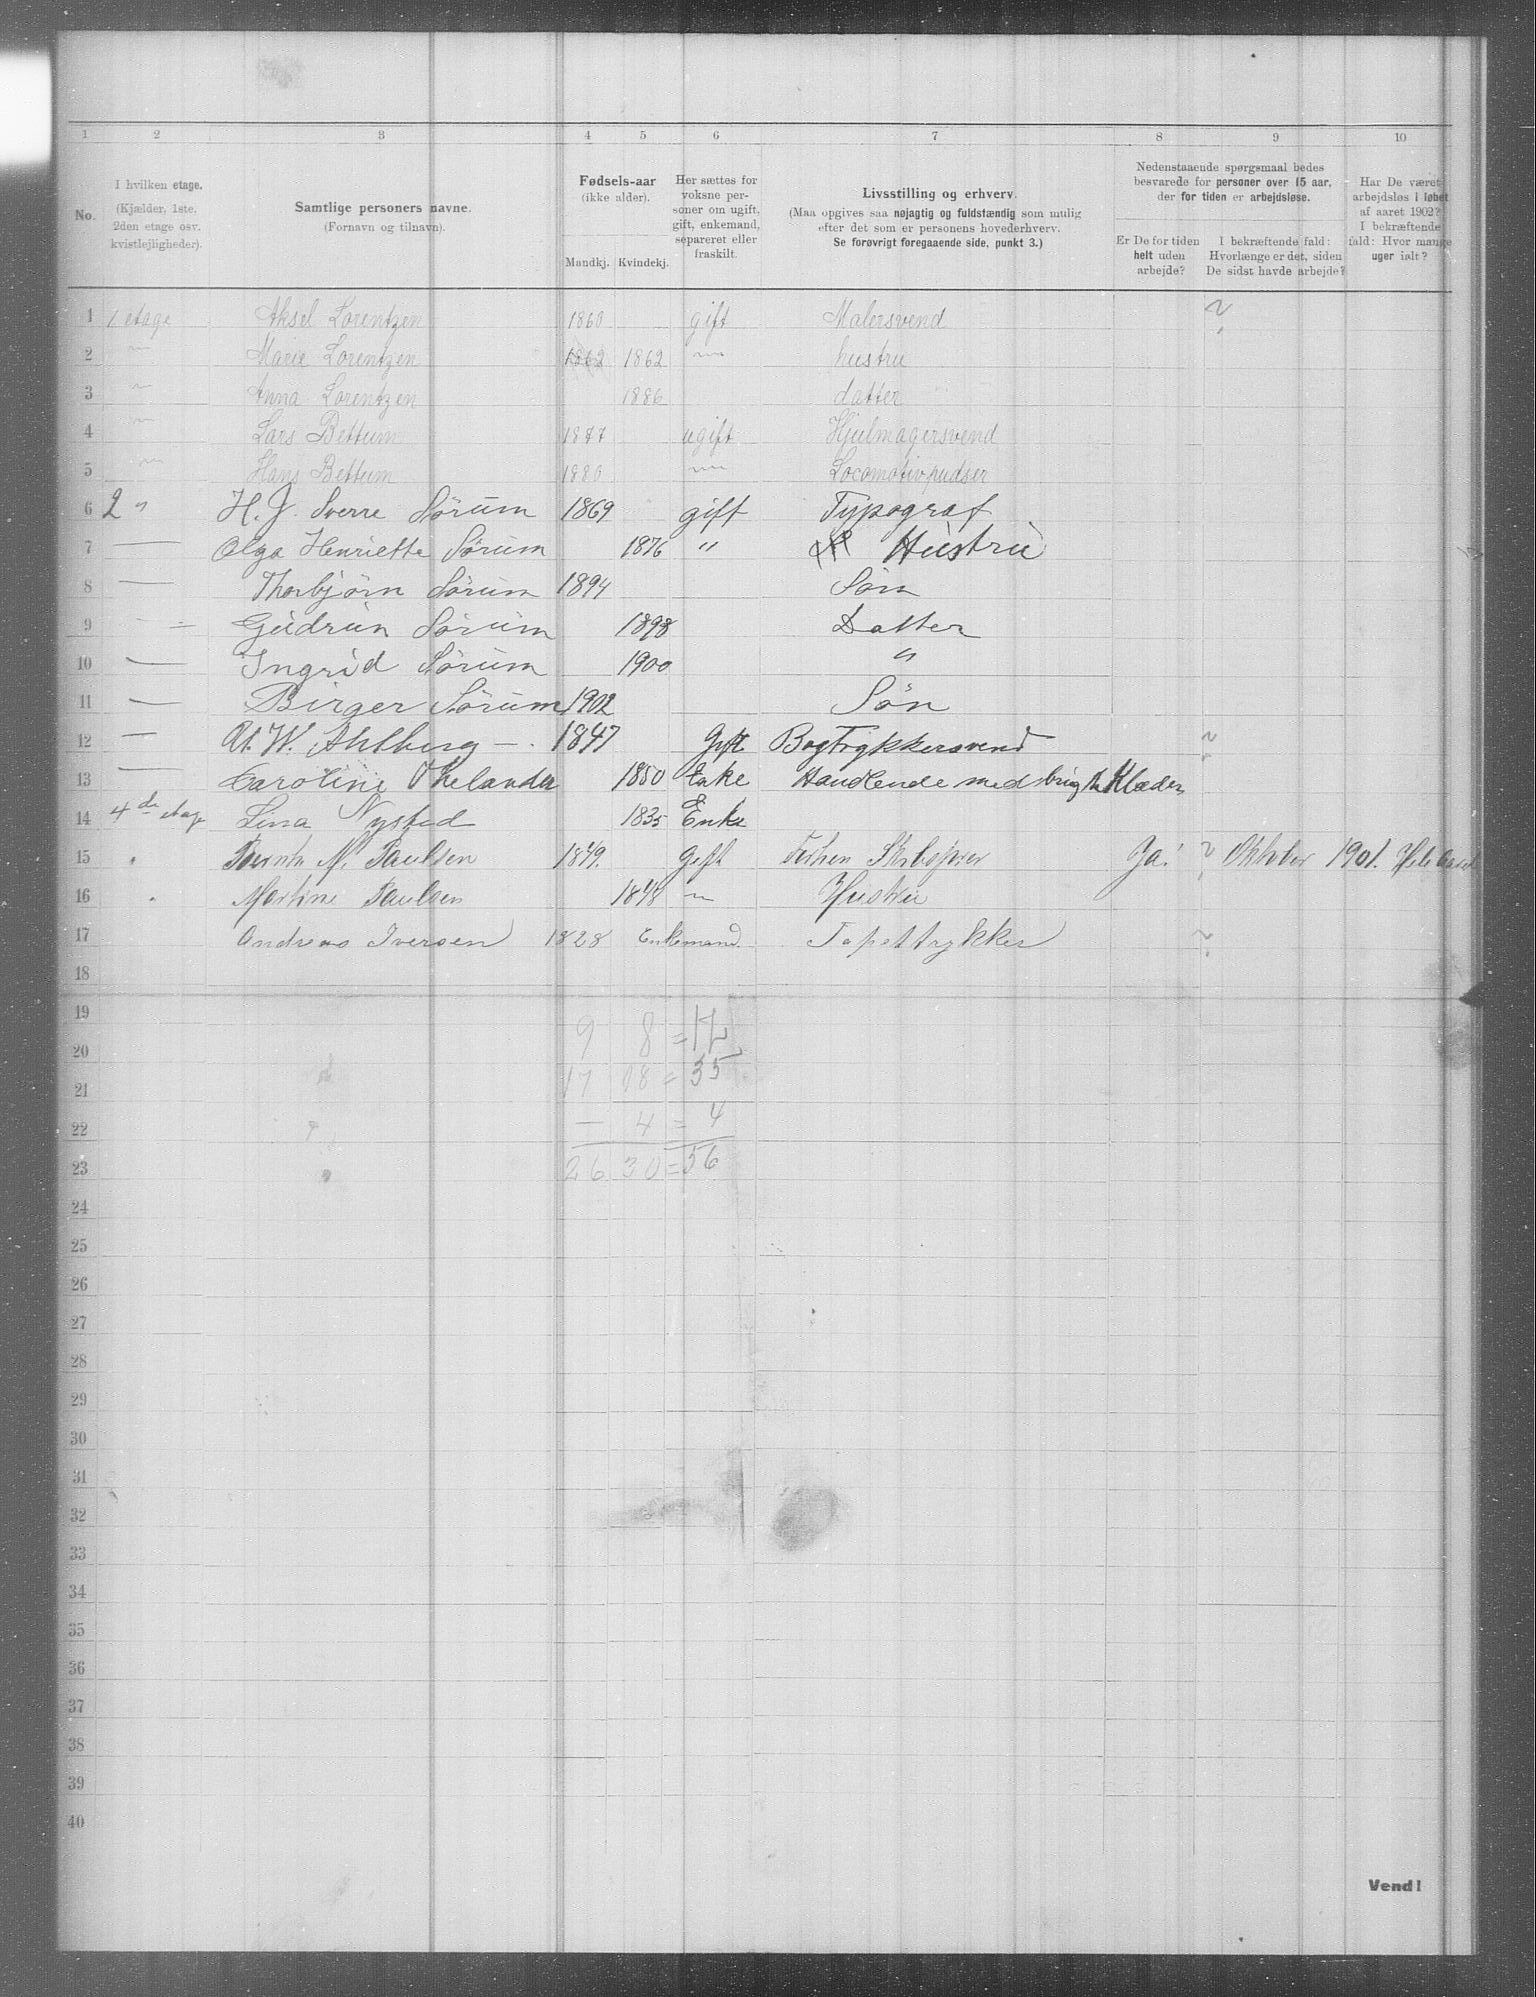 1 2 3 4 5 6 7 8 9 10
No.
I hvilken etage.
(Kjælder, 1ste.
2den etage osv.
kvistlejligheder).
Samtlige personers navne.
(Fornavn og tilnavn).
Fødsels-aar
(ikke alder).
Mandkj. Kvindekj.
Her sættes for
voksne per-
soner om ugift,
gift, enkemand,
separeret eller
fraskilt.
Livsstilling og erhverv.
(Maa opgives saa nøjagtig og fuldstændig som mulig
efter det som er personens hovederhverv.
Se forøvrigt foregaaende side, punkt 3.)
Nedenstaaende spørgsmaal bedes
besvarede for personer over 15 aar,
der for tiden er arbejdsløse.
Er De for tiden
helt uden
arbejde?
I bekræftende fald:
Hvorlænge er det, siden
De sidst havde arbejde?
Har De været
arbejdsløs i løbet
af aaret 1902?
I bekræftende
fald: Hvor mange
uger ialt?
1 1 etage Aksel Lorentzen 1860 gift Malersvend ?
2 " Marie Lorentzen 1862 1862 " hustru
3 " Anna Lorentzen 1886 datter
4 " Lars Bettum 1877 ugift Hjulmagersvend
5 " Hans Bettum 1880 " Locomotivpudser
6 2 " H. J. Sverre Sørum 1869 gift Typograf
7 — Olga Henriette Sørum 1876 " Hustru
8 — Thorbjörn Sörum 1894 Sön
9 — Gudrun Sörum 1898 Datter
10 — Ingrid Sörum 1900 "
11 — Birger Sörum 1902 Sön
12 — W. Ahlberg 1847 Gift Bogtrykkersvend ?
13 — Caroline Thelander 1850 Enke Handlende med brugte Klæder
14 4de etage Lina Nysted 1835 Enke
15 " M. Paulsen 1849. Gift Ja! ? Oktober 1901. Hele
16 " Martine Paulsen 1848 " Hustru
17 Andreas Iversen 1828 Enkemand Tapettrykker ?
18
19 9 8 = 17
20
21 17 18 = 35
22 — 4 = 4
23 26 30 = 56
24
25
26
27
28
29
30
31
32
33
34
35
36
37
38
39
40
Vend!